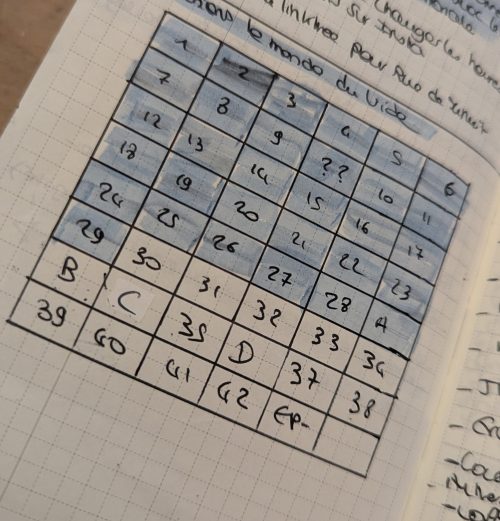 changer les
sur insta
linktree pour
le monde du vide
1 2 3 4 5 6
7 8 9 ?? 10 11
12 13 14 15 16 17
18 19 20 21 22 23
24 25 26 27 28 A
29 30 31 32 33 34
B C 35 D 37 38
39 40 41 42 Ep-